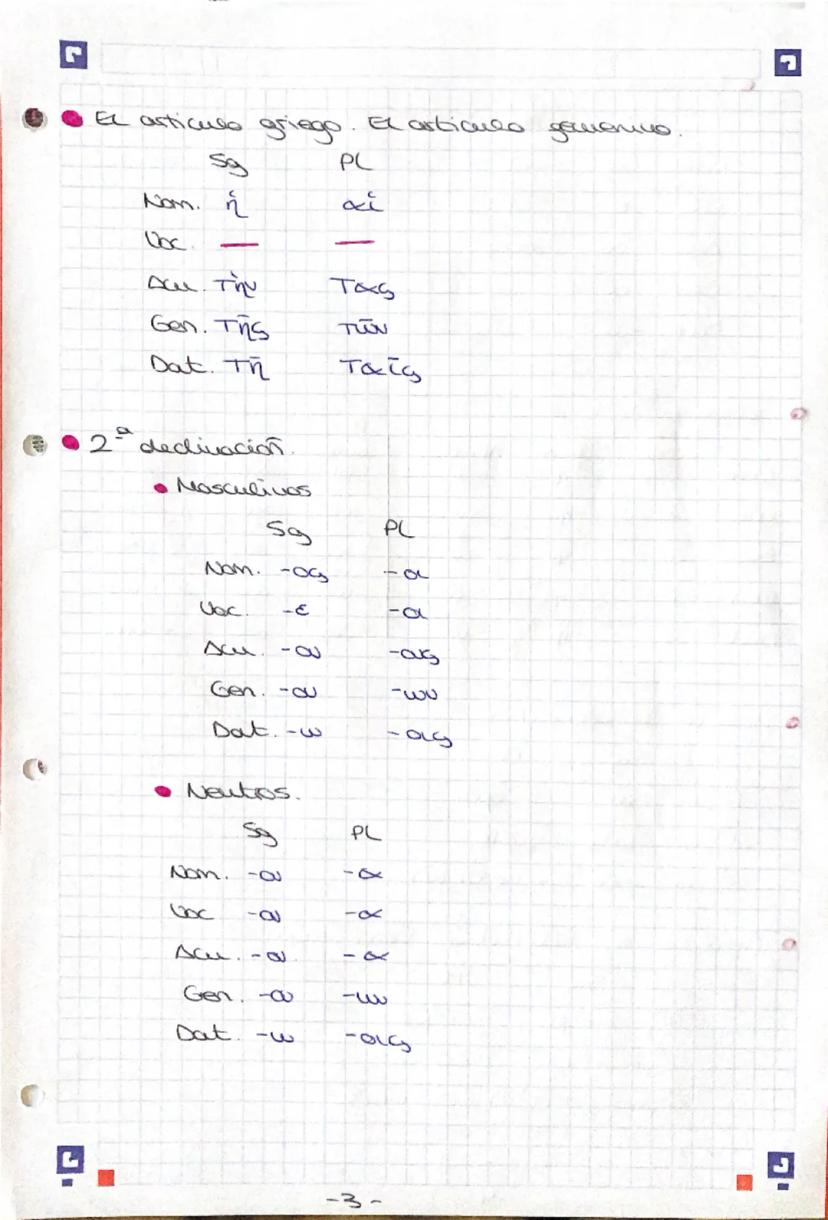 El artículo griego. El artículo femenino.
Sg PL
Nom. ἡ αἱ
Voc. — —
Acu. Τὴν Τας
Gen. Τῆς Τῶν
Dat. Τῆ Ταῖς
2ª declinación.
Masculinos
Sg PL
Nom. -ος -οι
Voc. -ε -οι
Acu. -ον -ους
Gen. -ου -ων
Dat. -ω -οις
Neutros.
Sg PL
Nom. -ον -α
Voc -ον -α
Acu. -ον -α
Gen. -ου -ων
Dat. -ω -οις
-3-